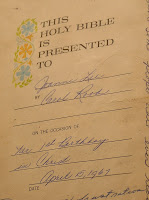 THIS
HOLY BIBLE
IS
PRESENTED
TO
Lee
BY Carol
ON THE OCCASION OF
Her 1st Birthday
in Christ
DATE April 5, 1967